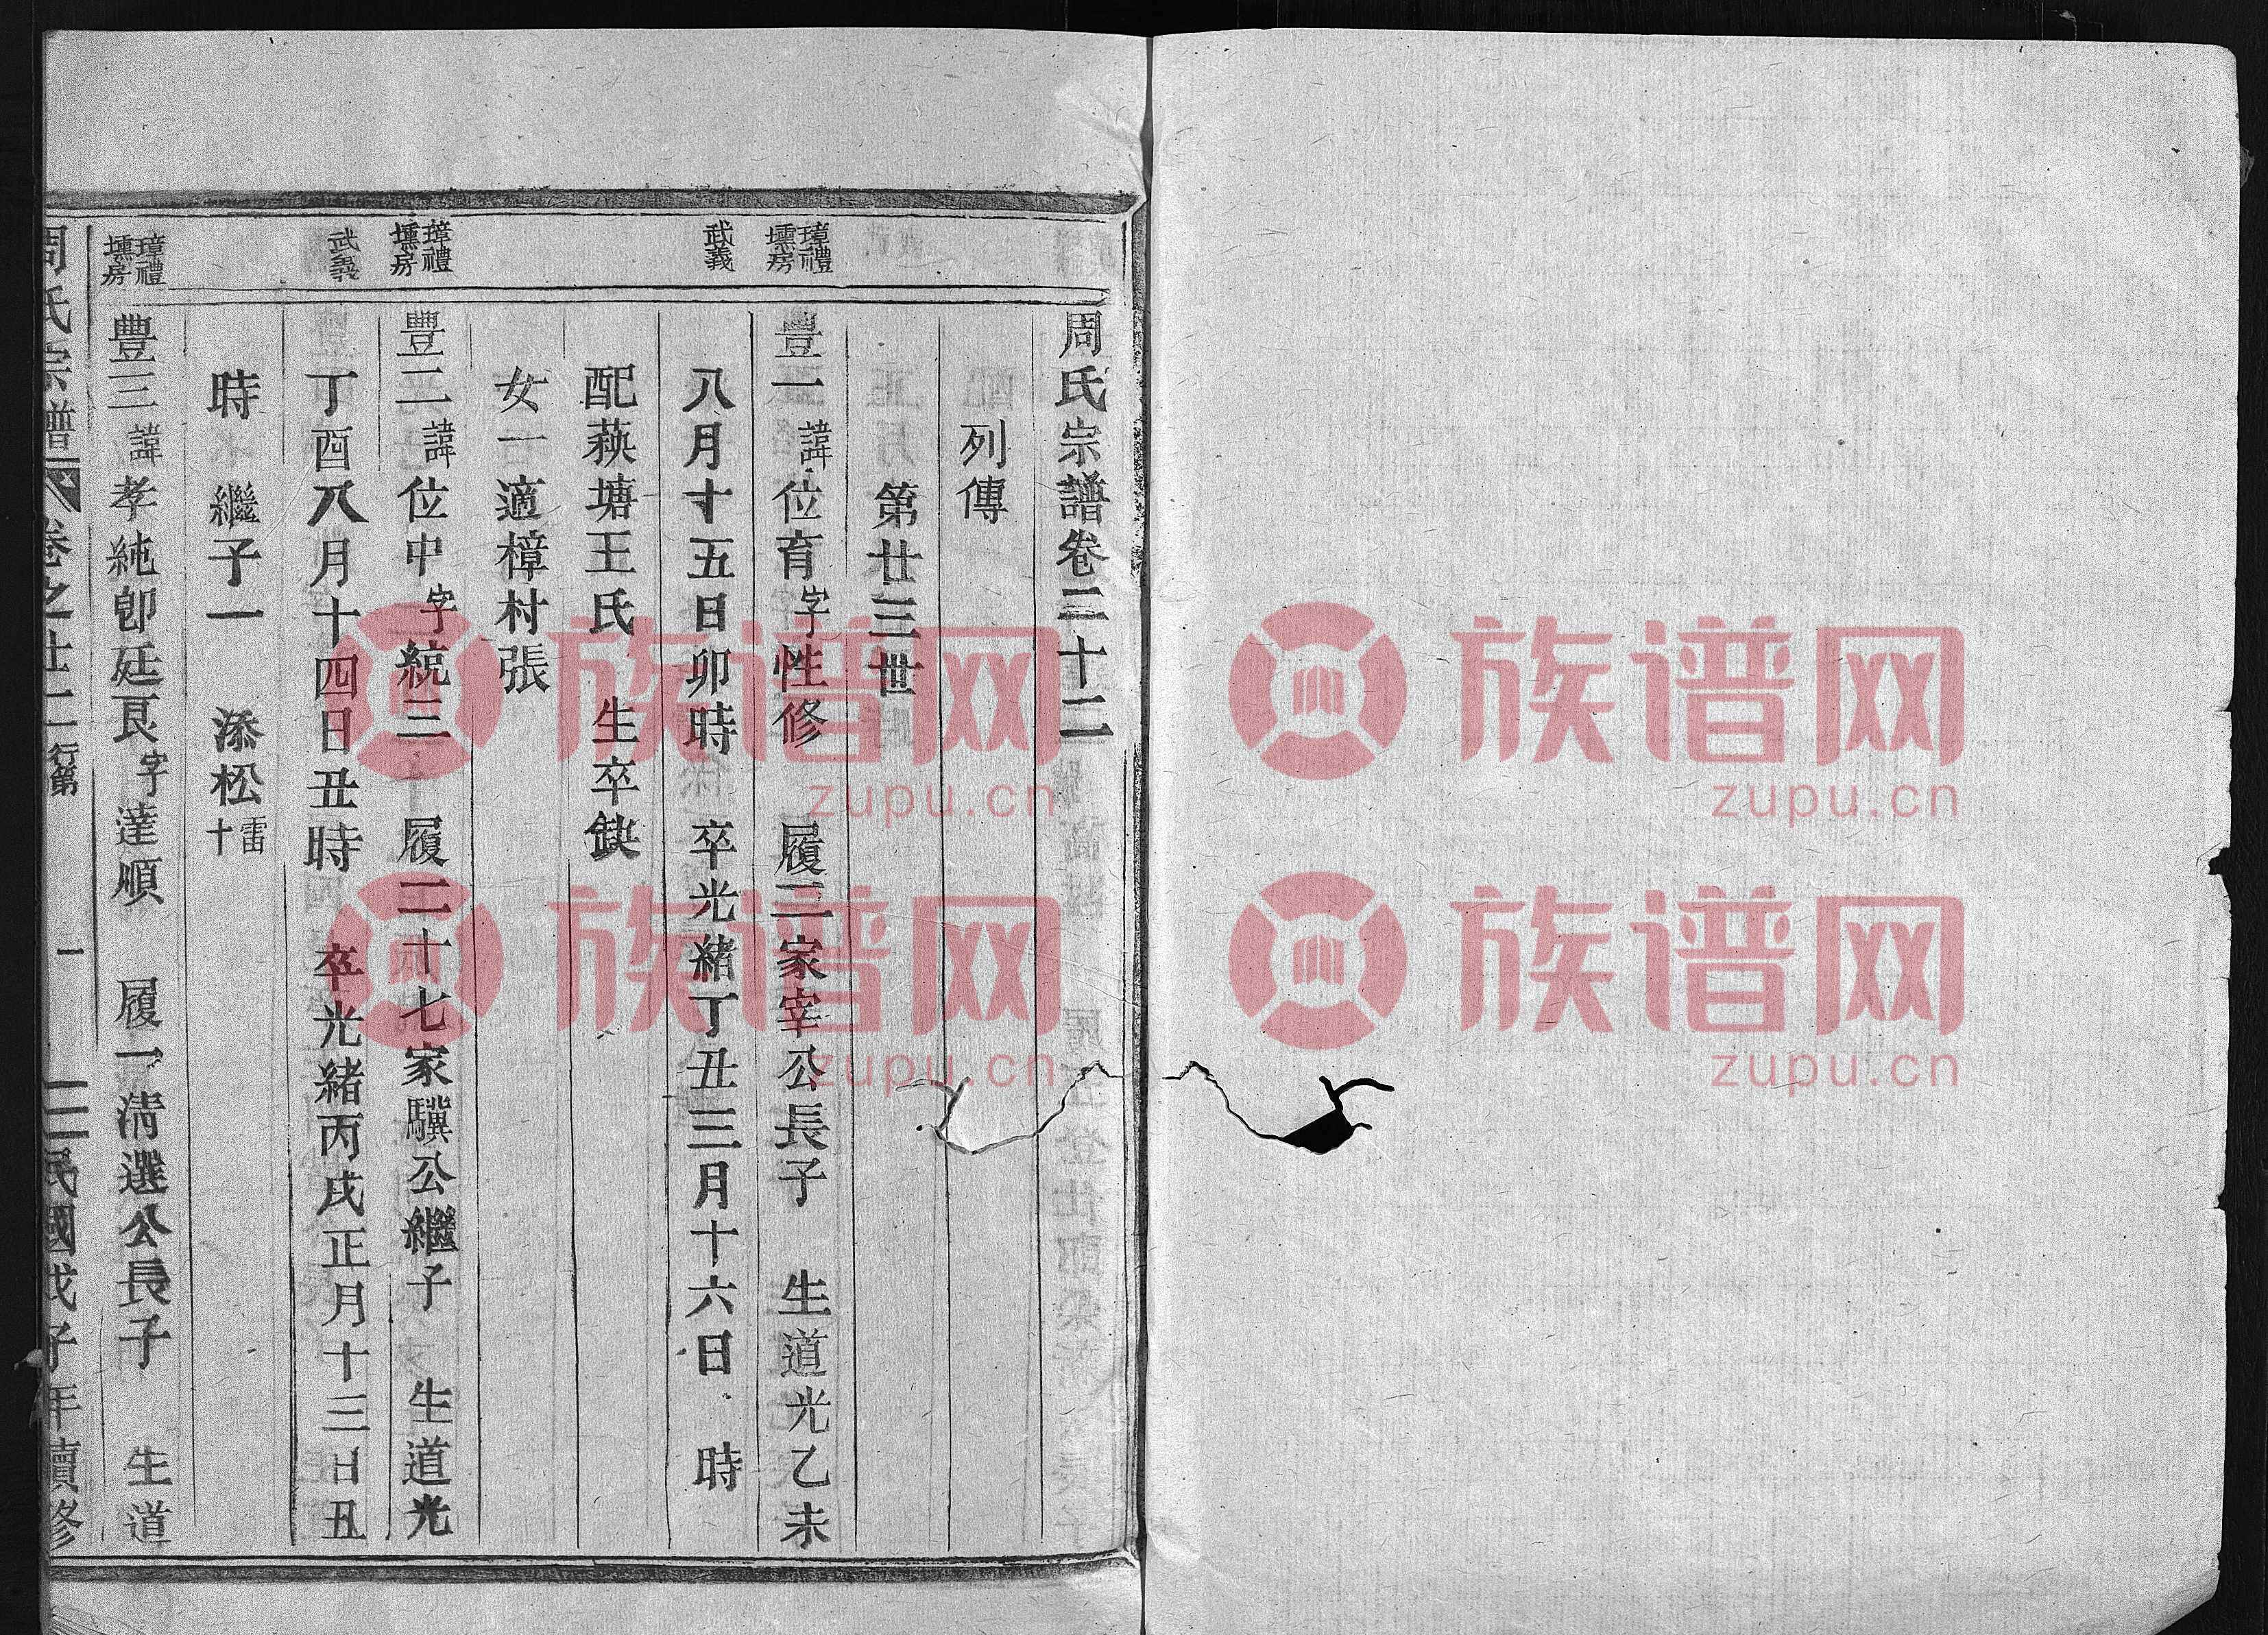 周氏宗譜卷二十二
列傳
第廿三世
璋禮
壎房
豐一諱位育字性修 履三家宰公長子 生道光乙未
武義
八月十五日卯時 卒光緒丁丑三月十六日 時
配萩塘王氏 生卒缺
女一適樟村張
璋禮
壎房
豐二諱位中字統三 履二十七家驥公繼子 生道光
武義
丁酉八月十四日丑時 卒光緒丙戌正月十三日丑
時 繼子一 添松雷十
璋禮
壎房
豐三諱孝純卽廷艮字達順 履一清選公長子 生道
周氏宗譜 卷之廿二 行第 一 民國戊子年續修
族谱网
zupu.cn
族谱网
zupu.cn
族谱网
zupu.cn
族谱网
zupu.cn